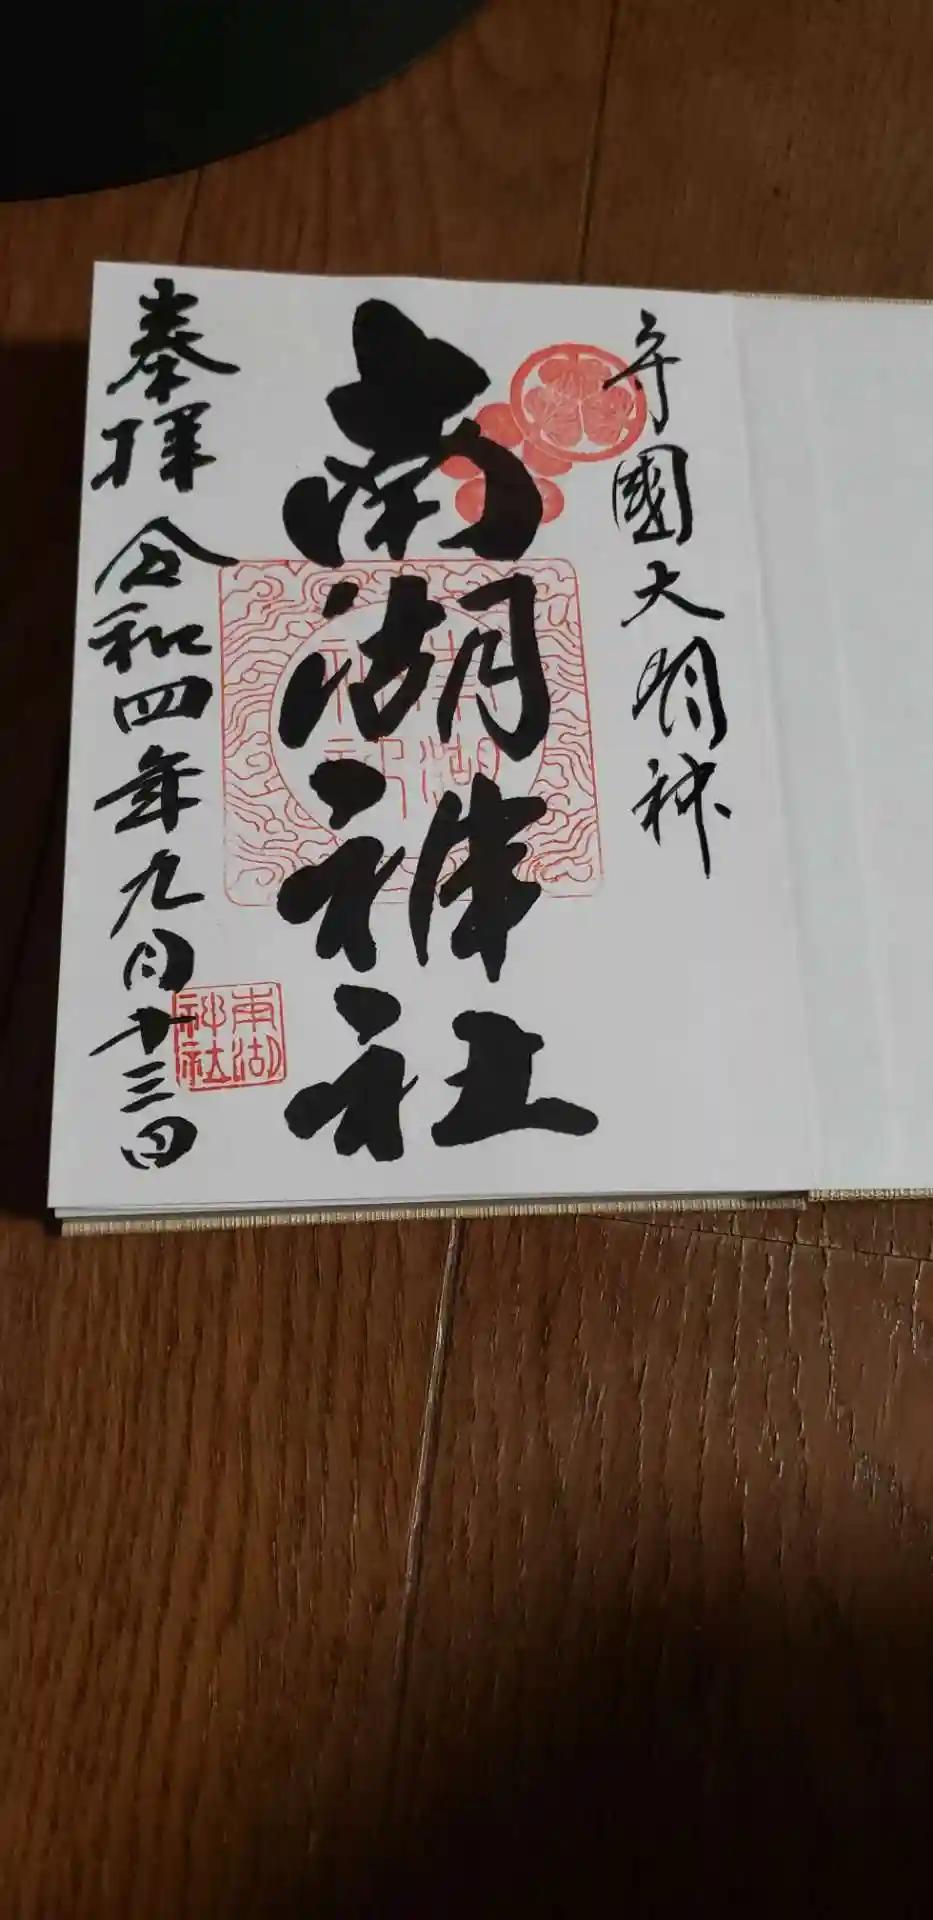 守國大明神
南湖神社
奉拝 令和四年九月十三日
南湖
神社
南湖
神社